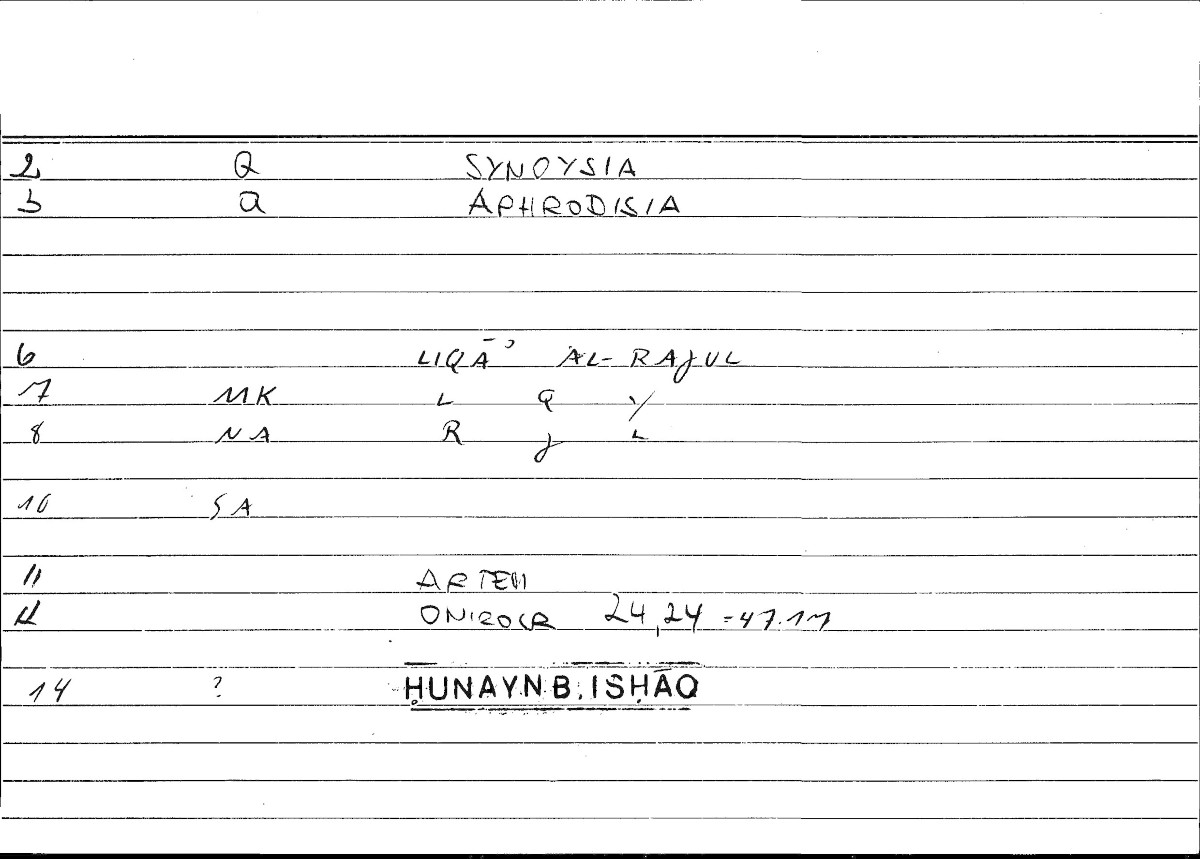 2 Q SYNOYSIA
3 Q APHRODISIA
6 LIQĀʾ AL-RAJUL
7 MK L Q Y
8 NA R J L
10 SA
11 ARTEM
12 ONIROCR 24,24 = 47.17
14 ? ḤUNAYN B. ISḤĀQ